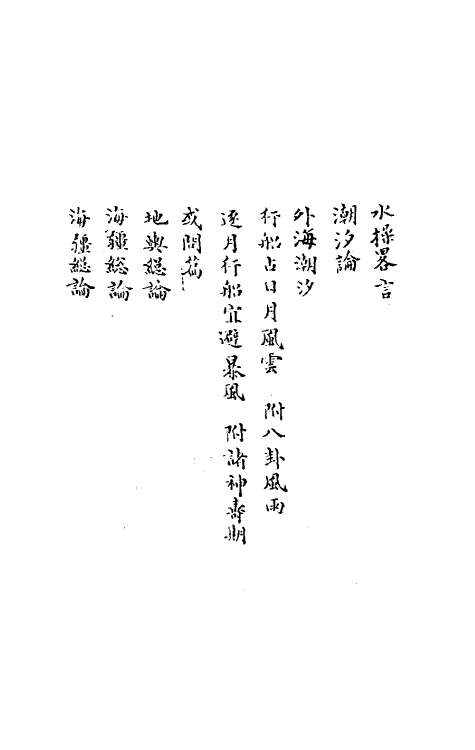 水操畧言
潮汐論
外海潮汐
行船占日月風雲 附八卦風雨
逐月行船宜避暴風 附諸神壽期
或問篇
地輿總論
海疆總論
海疆總論